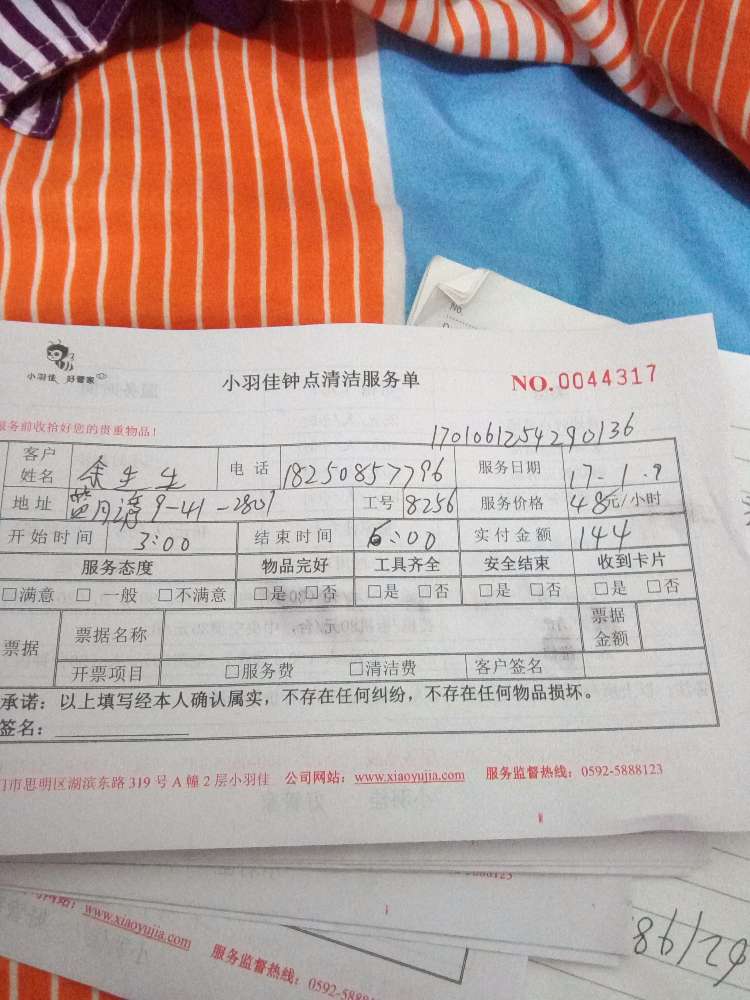 No.
小羽佳 好管家
小羽佳钟点清洁服务单 NO.0044317
服务前收拾好您的贵重物品!
1701061254290136
客户姓名 余先生 电话 18250857796 服务日期 17-1.9
地址 蓝月湾9-41-2801 工号 8256 服务价格 48元/小时
开始时间 3:00 结束时间 6:00 实付金额 144
服务态度 物品完好 工具齐全 安全结束 收到卡片
□满意 □一般 □不满意 □是 □否 □是 □否 □是 □否 □是 □否
票据 票据名称 票据金额
开票项目 □服务费 □清洁费 客户签名
承诺：以上填写经本人确认属实，不存在任何纠纷，不存在任何物品损坏。
签名：
门市思明区湖滨东路 319 号 A 幢 2 层小羽佳 公司网站：www.xiaoyujia.com 服务监督热线：0592-5888123
www.xiaoyujia.com 服务监督热线：0592-5888
86129